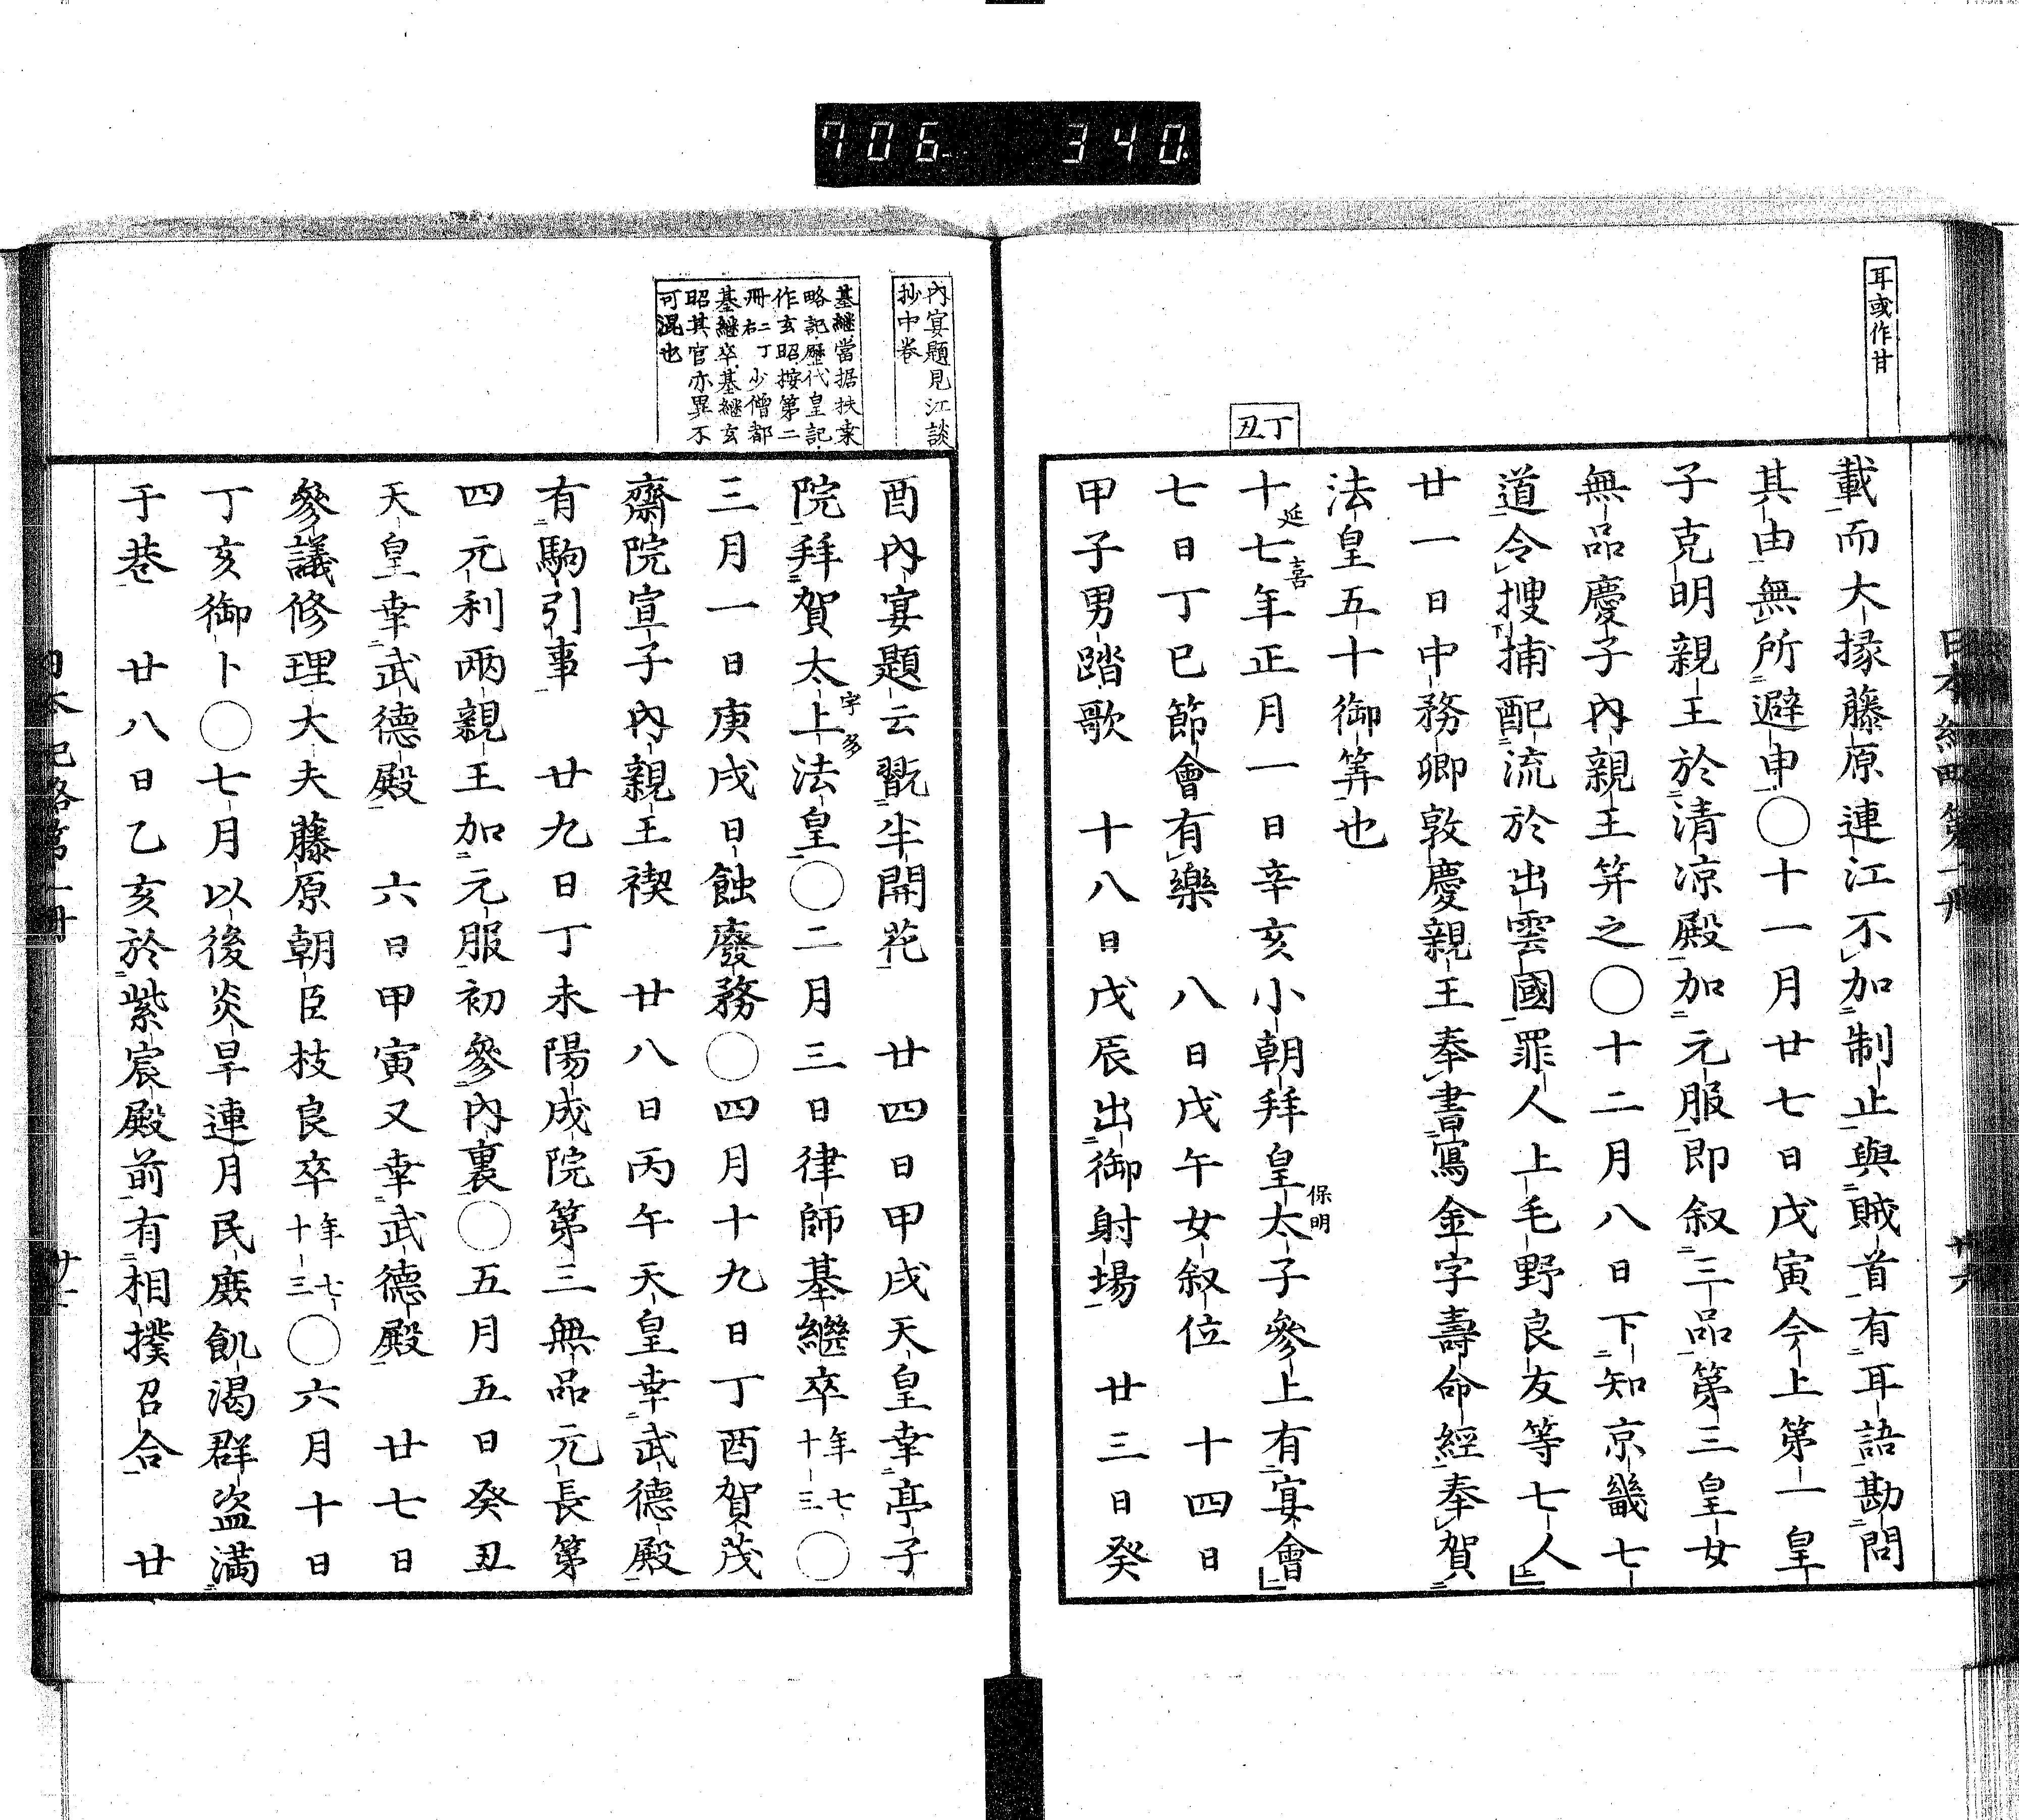 706 340
日本紀略第一
廿六
耳或作甘
載而大掾藤原連江不加制止與賊首有耳語勘問
其由無所避申〇十一月廿七日戊寅今上第一皇
子克明親王於清凉殿加元服即叙三品第三皇女
無品慶子內親王笄之〇十二月八日下知京畿七
道令搜捕配流於出雲國罪人上毛野良友等七人
廿一日中務卿敦慶親王奉書寫金字壽命經奉賀
法皇五十御筭也
丁丑
延喜
十七年正月一日辛亥小朝拜皇太子參上有宴會
保明
七日丁巳節會有樂 八日戊午女叙位 十四日
甲子男踏歌 十八日戊辰出御射場 廿三日癸
內宴題見江談
抄中卷
酉內宴題云翫半開花 廿四日甲戌天皇幸亭子
院拜賀太上法皇〇二月三日律師基繼卒年七十三〇
宇多
基繼當据扶桒
略記歷代皇記
作玄昭按第二
冊右二丁少僧都
基繼卒基繼玄
昭其官亦異不
可混也
三月一日庚戌日蝕廢務〇四月十九日丁酉賀茂
齋院宣子內親王禊 廿八日丙午天皇幸武德殿
有駒引事 廿九日丁未陽成院第三無品元長第
四元利兩親王加元服初參內裏〇五月五日癸丑
天皇幸武德殿 六日甲寅又幸武德殿 廿七日
參議修理大夫藤原朝臣枝良卒年七十三〇六月十日
丁亥御卜〇七月以後炎旱連月民庶飢渴群盜滿
于巷 廿八日乙亥於紫宸殿前有相撲召合 廿
日本紀略第一冊